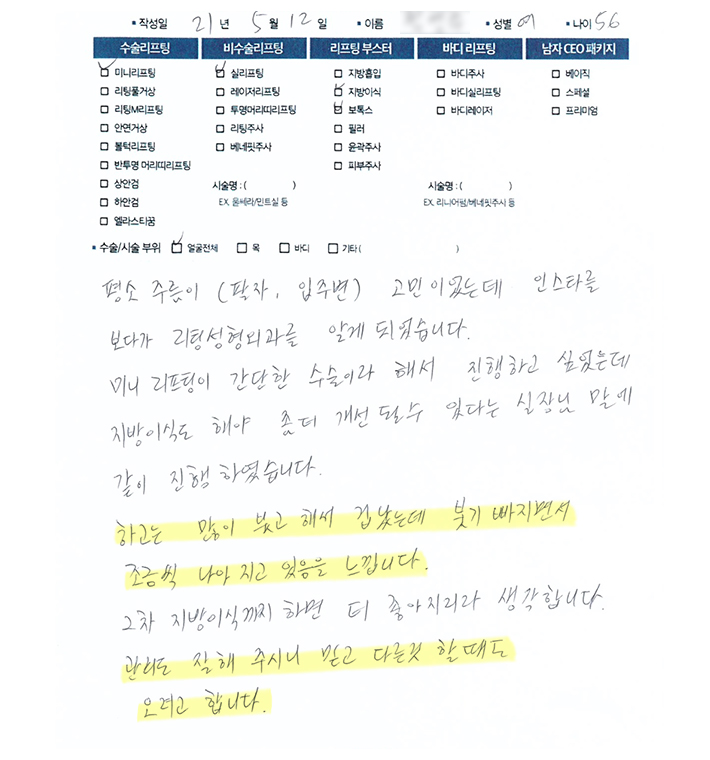 ▪ 작성일 21 년 5 월 12 일 ▪ 이름 ▪ 성별 여 ▪ 나이 56
수술리프팅 비수술리프팅 리프팅 부스터 바디 리프팅 남자 CEO 패키지
미니리프팅 실리프팅 지방흡입 바디주사 베이직
리팅풀거상 레이저리프팅 지방이식 바디실리프팅 스페셜
리팅M리프팅 투명머리띠리프팅 보톡스 바디레이저 프리미엄
안면거상 리팅주사 필러
볼턱리프팅 베네핏주사 윤곽주사
반투명 머리띠리프팅 피부주사
상안검 시술명 : ( ) 시술명 : ( )
하안검 EX. 울쎄라/민트실 등 EX. 리니어펌/베네핏주사 등
엘라스티꿈
▪ 수술/시술 부위 얼굴전체 목 바디 기타 ( )
평소 주름이 (팔자, 입주변) 고민이었는데 인스타를
보다가 리팅성형외과를 알게 되었습니다.
미니 리프팅이 간단한 수술이라 해서 진행하고 싶었는데
지방이식도 해야 좀더 개선 될수 있다는 실장님 말에
같이 진행 하였습니다.
하고는 많이 붓고 해서 겁났는데 붓기 빠지면서
조금씩 나아 지고 있음을 느낍니다.
2차 지방이식까지 하면 더 좋아지리라 생각합니다.
관리도 잘해 주시니 믿고 다른것 할때도
오려고 합니다.